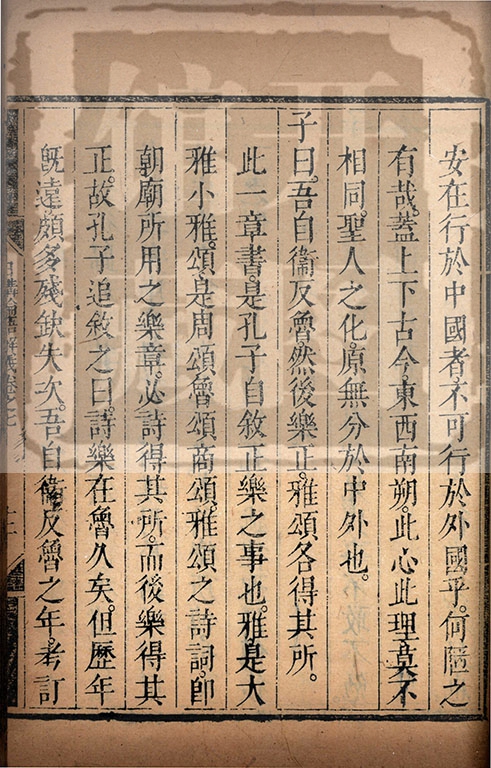 安在行於中國者不可行於外國乎。何陋之
有哉。蓋上下古今東西南朔。此心此理莫不
相同。聖人之化。原無分於中外也。
子曰。吾自衞反魯然後樂正。雅頌各得其所。
此一章書。是孔子自敘正樂之事也。雅是大
雅小雅。頌是周頌魯頌商頌。雅頌之詩詞。即
朝廟所用之樂章。必詩得其所。而後樂得其
正。故孔子追敘之曰。詩樂在魯久矣。但歷年
旣遠。頗多殘缺失次。吾自衞反魯之年。考訂